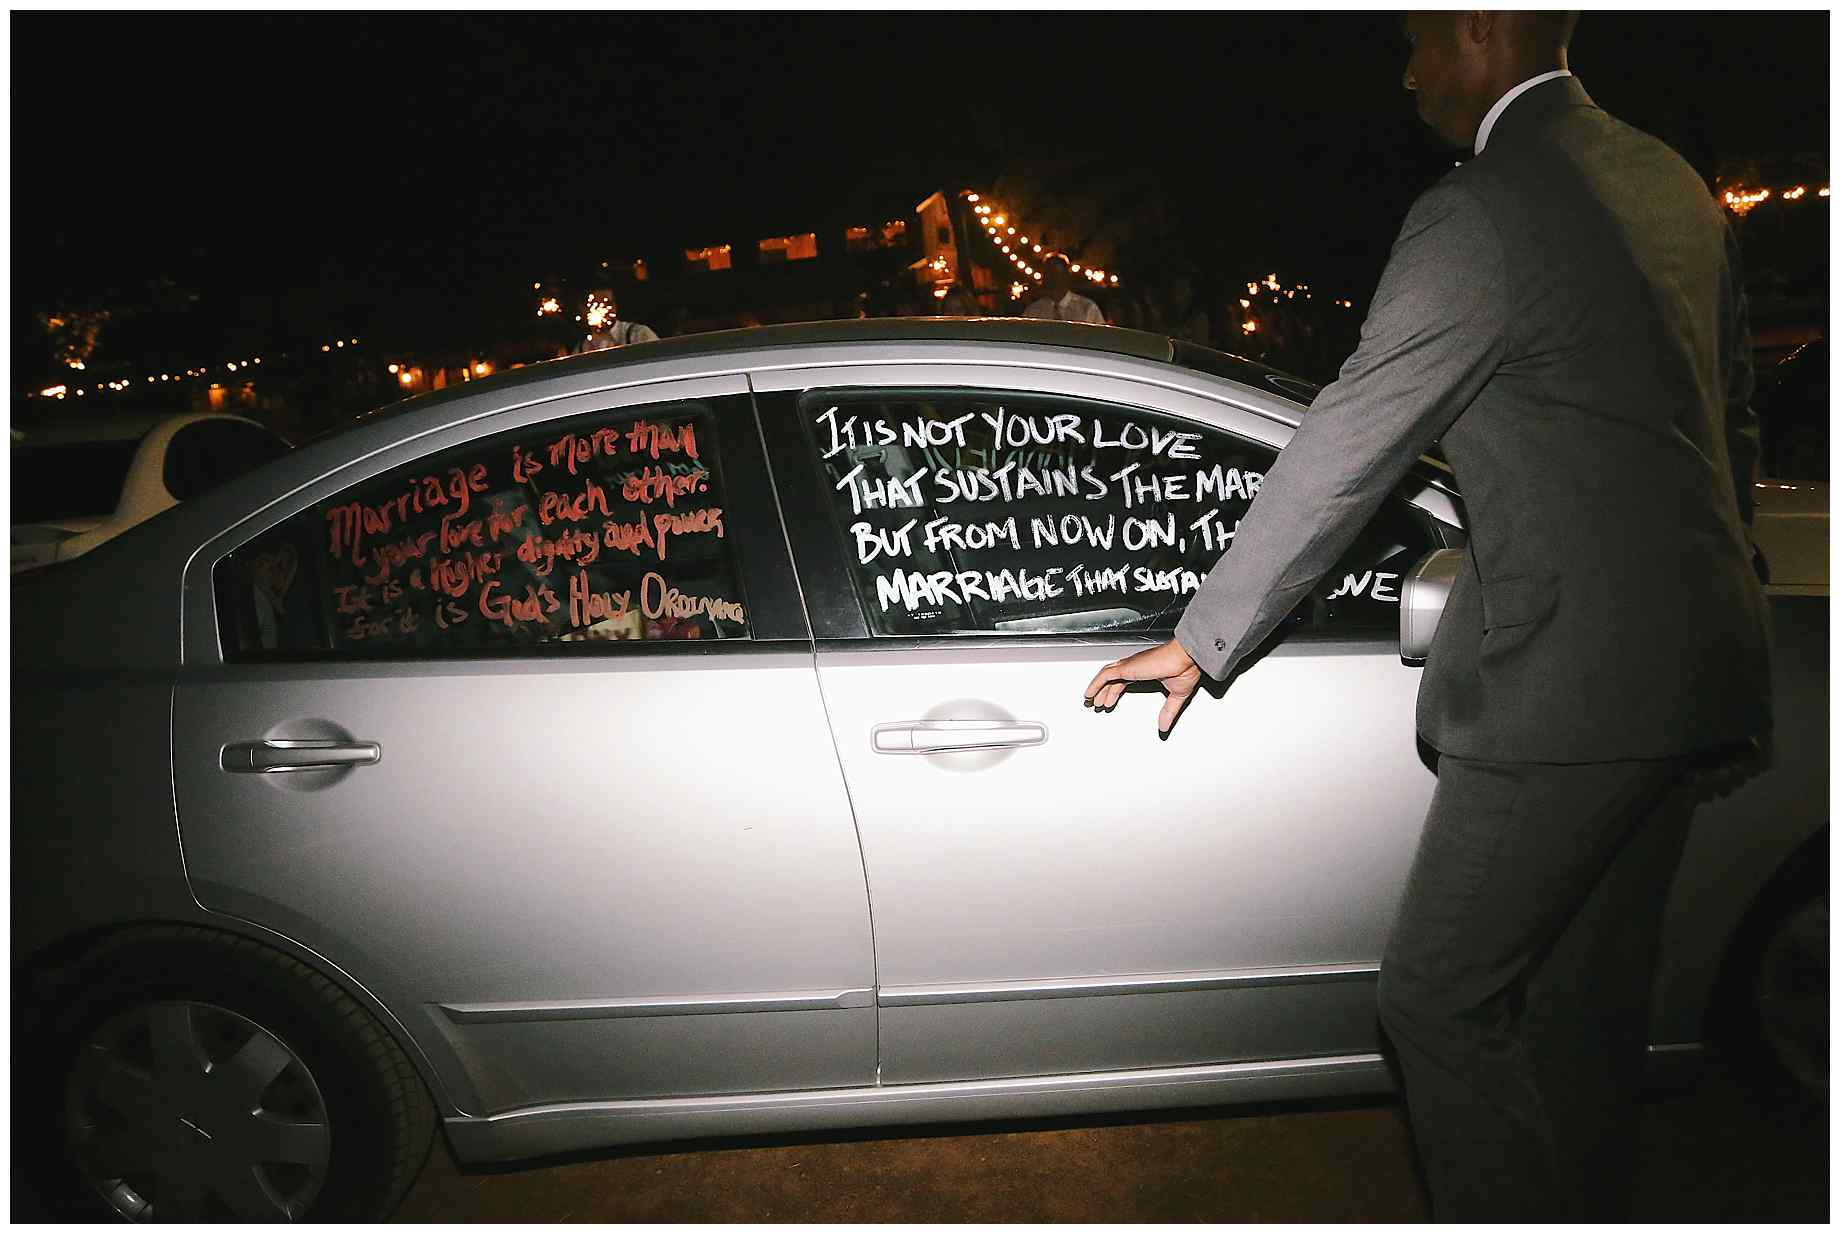 Marriage is more than
your love for each other.
It is a higher dignity and power
for it is God's Holy Ordinanc
It is not your love
that sustains the mar
but from now on, th
marriage that sustai ove